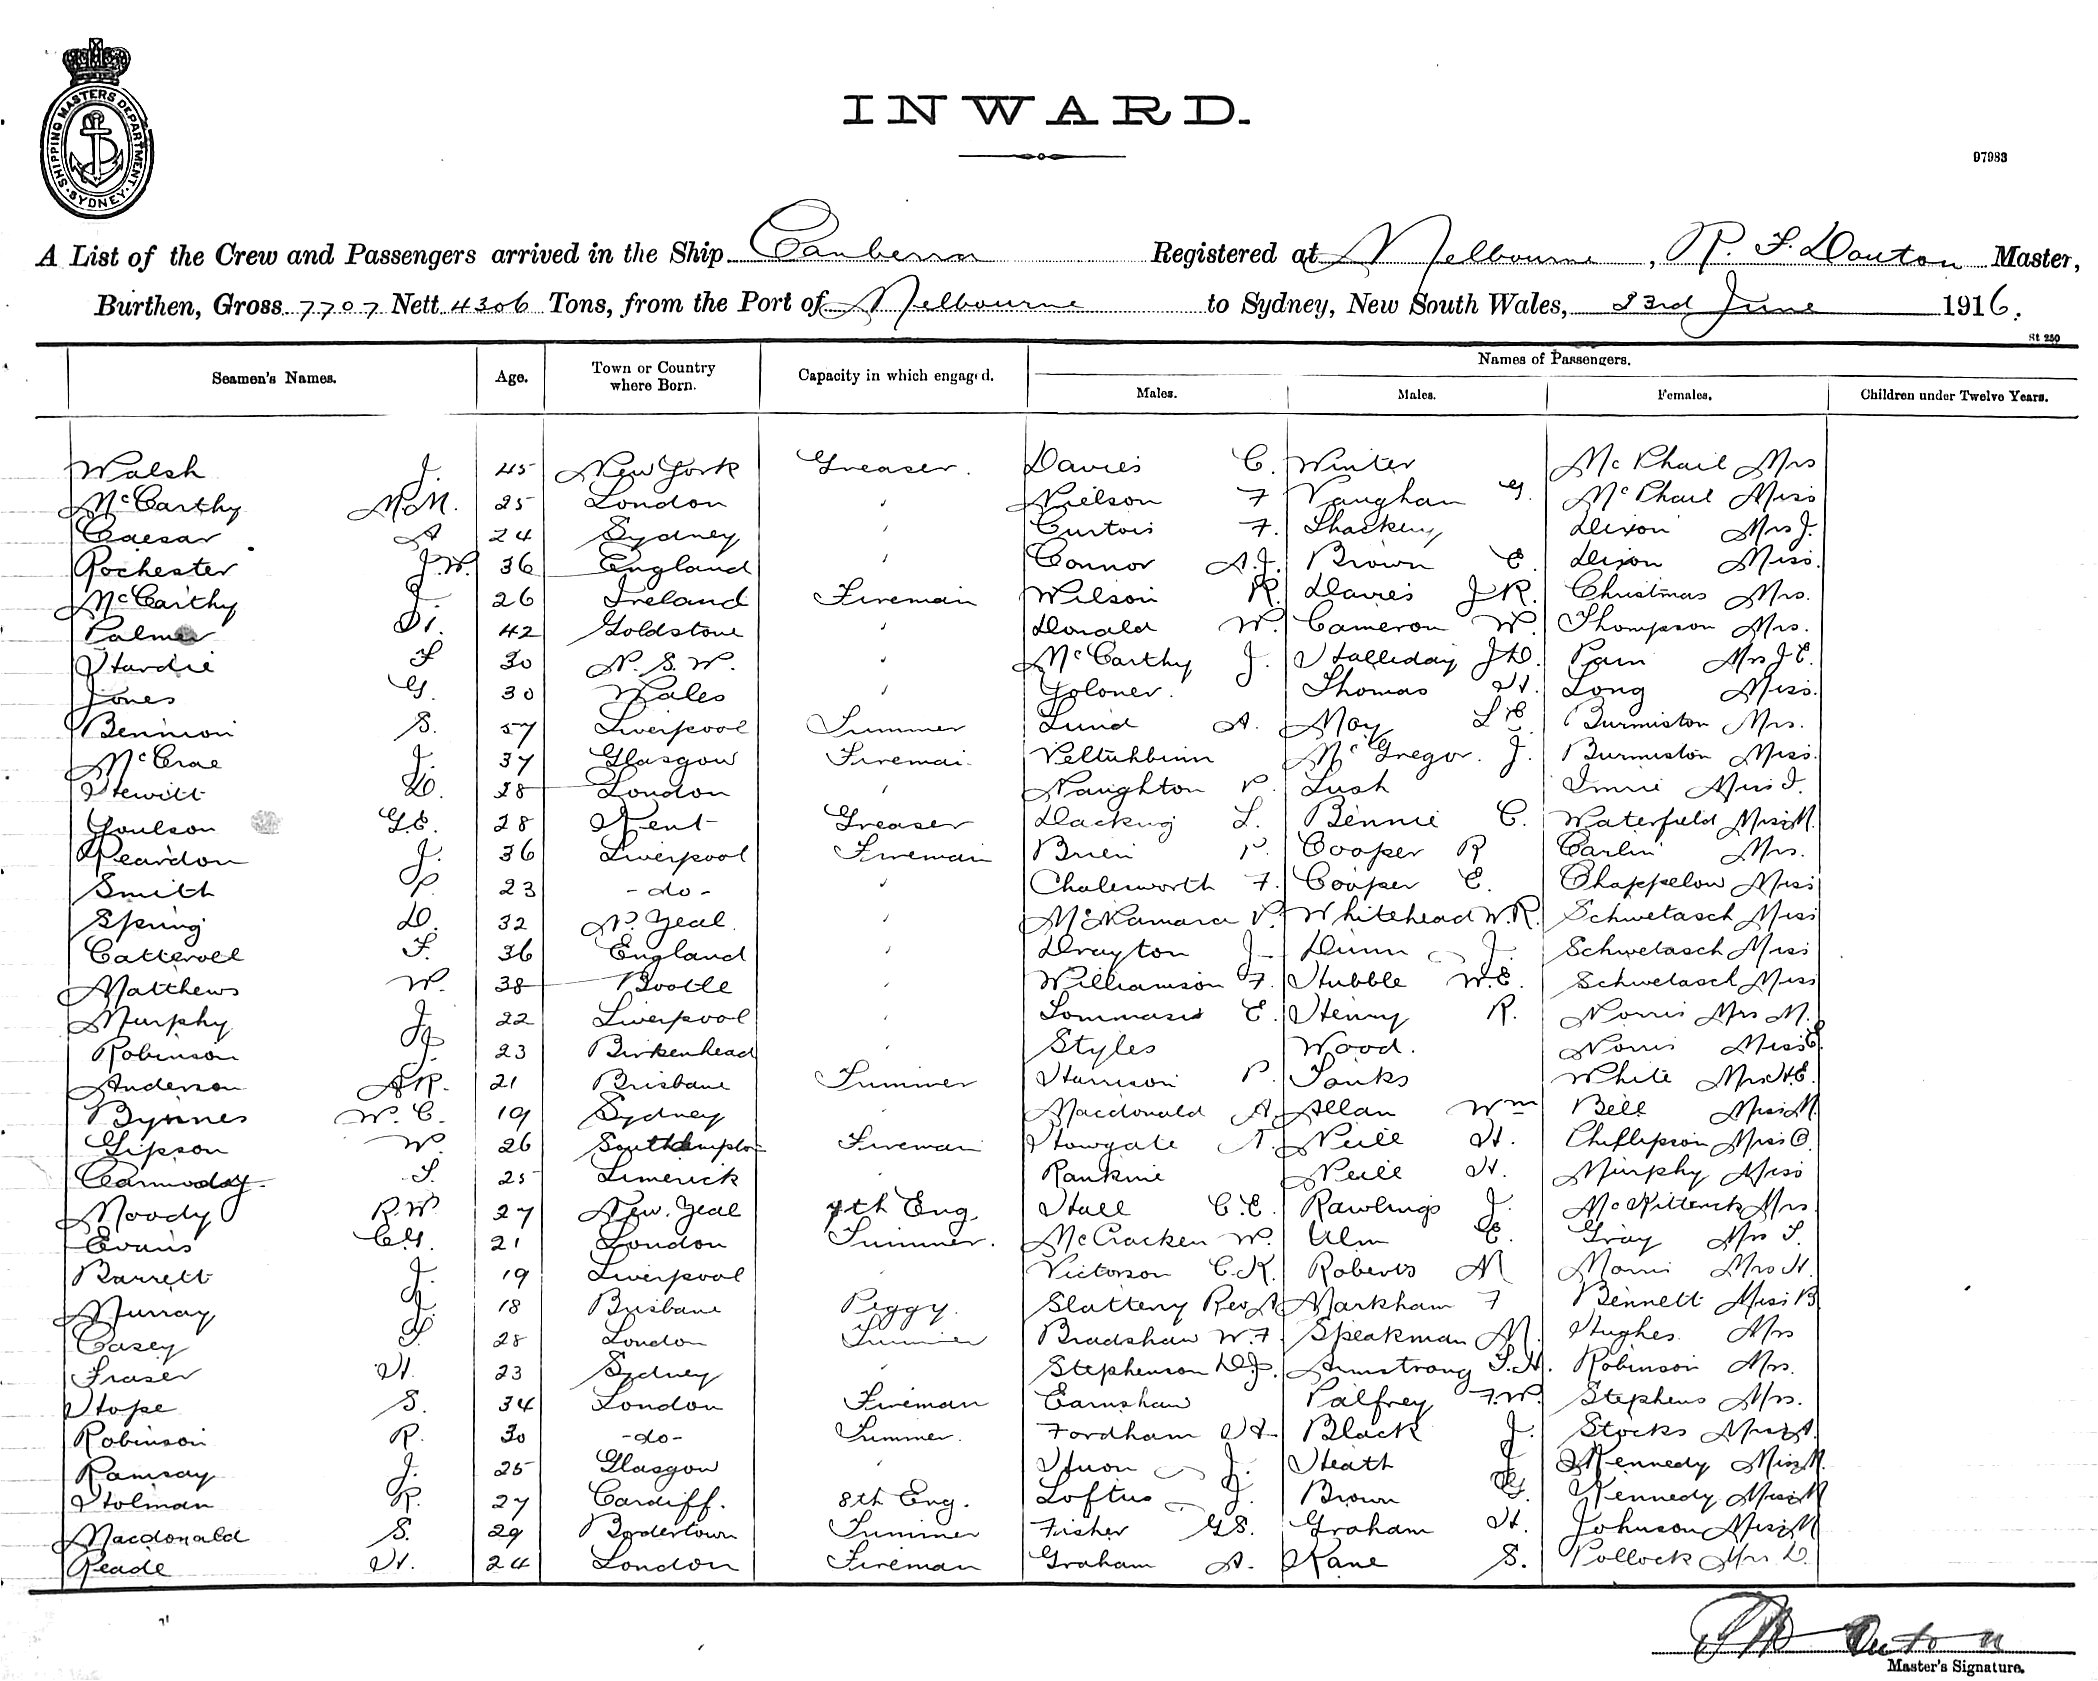 SHIPPING MASTERS DEPARTMENT. SYDNEY
INWARD.
97983
A List of the Crew and Passengers arrived in the Ship Canberra Registered at Melbourne, R. S. Dauton Master,
Burthen, Gross 7707 Nett 4306 Tons, from the Port of Melbourne to Sydney, New South Wales, 23rd June 1916.
St 250
Seamen's Names. Age. Town or Country where Born. Capacity in which engaged. Names of Passengers.
Males. Males. Females. Children under Twelve Years.
Walsh J. 45 New York Greaser. Davies C. Winter McPhail Mrs
McCarthy M.M. 25 London ' Nielson F Vaughan G. McPhail Miss
Caesar A 24 Sydney ' Curtois F. Dixon Mrs J.
Rochester J.W. 36 England ' Connor A.J. Brown E. Dixon Miss.
McCarthy J. 26 Ireland Fireman Wilson R. Davies J R. Christmas Mrs.
Palmer H. 42 Goldstone ' Donald W. Cameron W. Thompson Mrs.
Hardie F 30 N.S.W. ' McCarthy J. Halliday J D. Pain Mrs J E.
Jones G. 30 Wales ' Goloner. Thomas H. Long Miss.
Bennion S. 57 Liverpool Trimmer Lund A. May L E. Burmiston Mrs.
McCrae J. 37 Glasgow Fireman McGregor. J. Burmiston Miss.
Hewitt D. 28 London ' Naughton P. Lush Imrie Miss I.
Goulson G.E. 28 Kent Greaser L. Bennie C. Waterfield Miss M.
Reardon J. 36 Liverpool Fireman Brien P. Cooper R Carlin Mrs.
Smith P. 23 - do - ' Chalesworth F. Cooper E. Chappelow Miss
Spring D. 32 N. Zeal. ' McNamara P. Whitehead W.R. Schwetasch Miss
Catterall F. 36 England ' Drayton J. Dunn J. Schwetasch Miss
Matthews W. 38 Bootle ' Williamson F. Hubble W.E. Schwetasch Miss
Murphy J. 22 Liverpool ' E. Henry R. Norris Mrs M.
Robinson J. 23 Birkenhead ' Styles Wood. Norris Miss E.
Anderson A.R. 21 Brisbane Trimmer Harrison P. Tonks White Mrs H.E.
Byrnes W.C. 19 Sydney ' Macdonald A. Allan Wm Bell Miss M.
Gipson W. 26 Southampton Fireman Howgate A. Neill H. Miss
Carmoday S. 25 Limerick ' Rankine Neill H. Murphy Miss
Moody R.W. 27 New. Zeal 7th Eng. Hall C.E. Rawlings J. McKitterick Mrs
Evans C.G. 21 London Trimmer. McCracken W. Ulm E. Gray Mrs S.
Barrett J. 19 Liverpool ' Victorson C.K. Roberts M Morris Mrs H.
Murray J. 18 Brisbane Peggy. Slattery Rev Markham F Bennett Miss B
Casey F. 28 London Trimmer Bradshaw W.F. Speakman M. Hughes Mrs
Fraser H. 23 Sydney ' Stephenson D.J. Armstrong S.H. Robinson Mrs.
Hope S. 34 London Fireman Earnshaw Palfrey F.W. Stephens Mrs.
Robinson R. 30 - do - Trimmer. Fordham H Black J. Stocks Miss A.
Ramsay J. 25 Glasgow ' Huon J. Heath Kennedy Miss M.
Holman R. 27 Cardiff. 8th Eng. Loftus J. Brown G. Kennedy Miss M
Macdonald S. 29 Bordertown Trimmer Fisher G S. Graham H. Johnson Miss M
Reade H. 24 London Fireman Graham A. Kane S. Pollock Mrs D.
Master's Signature.